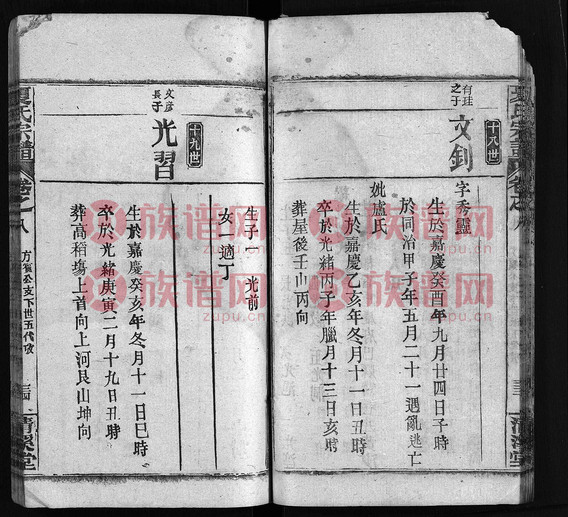 十八世
有珪之子
文釗
字秀靈
生於嘉慶癸酉年九月廿四日子時
於同治甲子年五月二十一遇亂逃亡
妣盧氏
生於嘉慶乙亥年冬月十一日亥時
卒於光緒丙子年臘月十三日亥時
葬屋後壬山丙向
生子一 光前
女一適丁
十九世
文彦長子
光習
生於嘉慶癸亥年冬月十一日巳時
卒於光緒庚寅二月十九日丑時
葬高稻場上首向上河艮山坤向
夏氏宗譜
卷之八
方賓公支下世五代攷
清溪堂
族谱网
zupu.cn
族谱网
zupu.cn
族谱网
zupu.cn
族谱网
zupu.cn